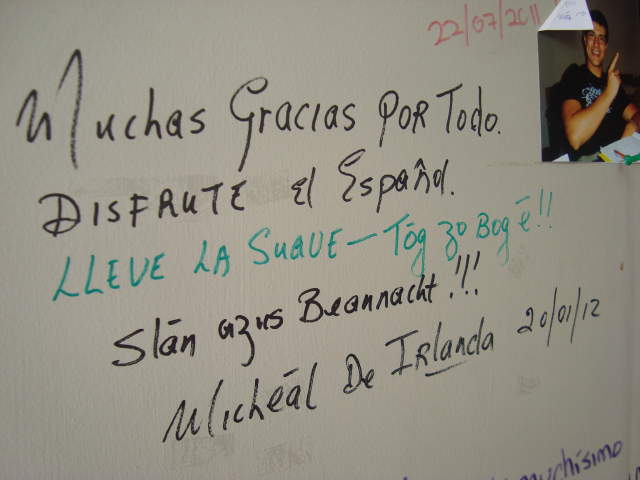 22/07/2011
Muchas Gracias POR Todo.
DISFRUTE el Español.
LLEVE LA SUAVE - Tóg go Bog é!!
Slán agus Beannacht!!!
Micheál De IRlanda 20/01/12
muchísimo